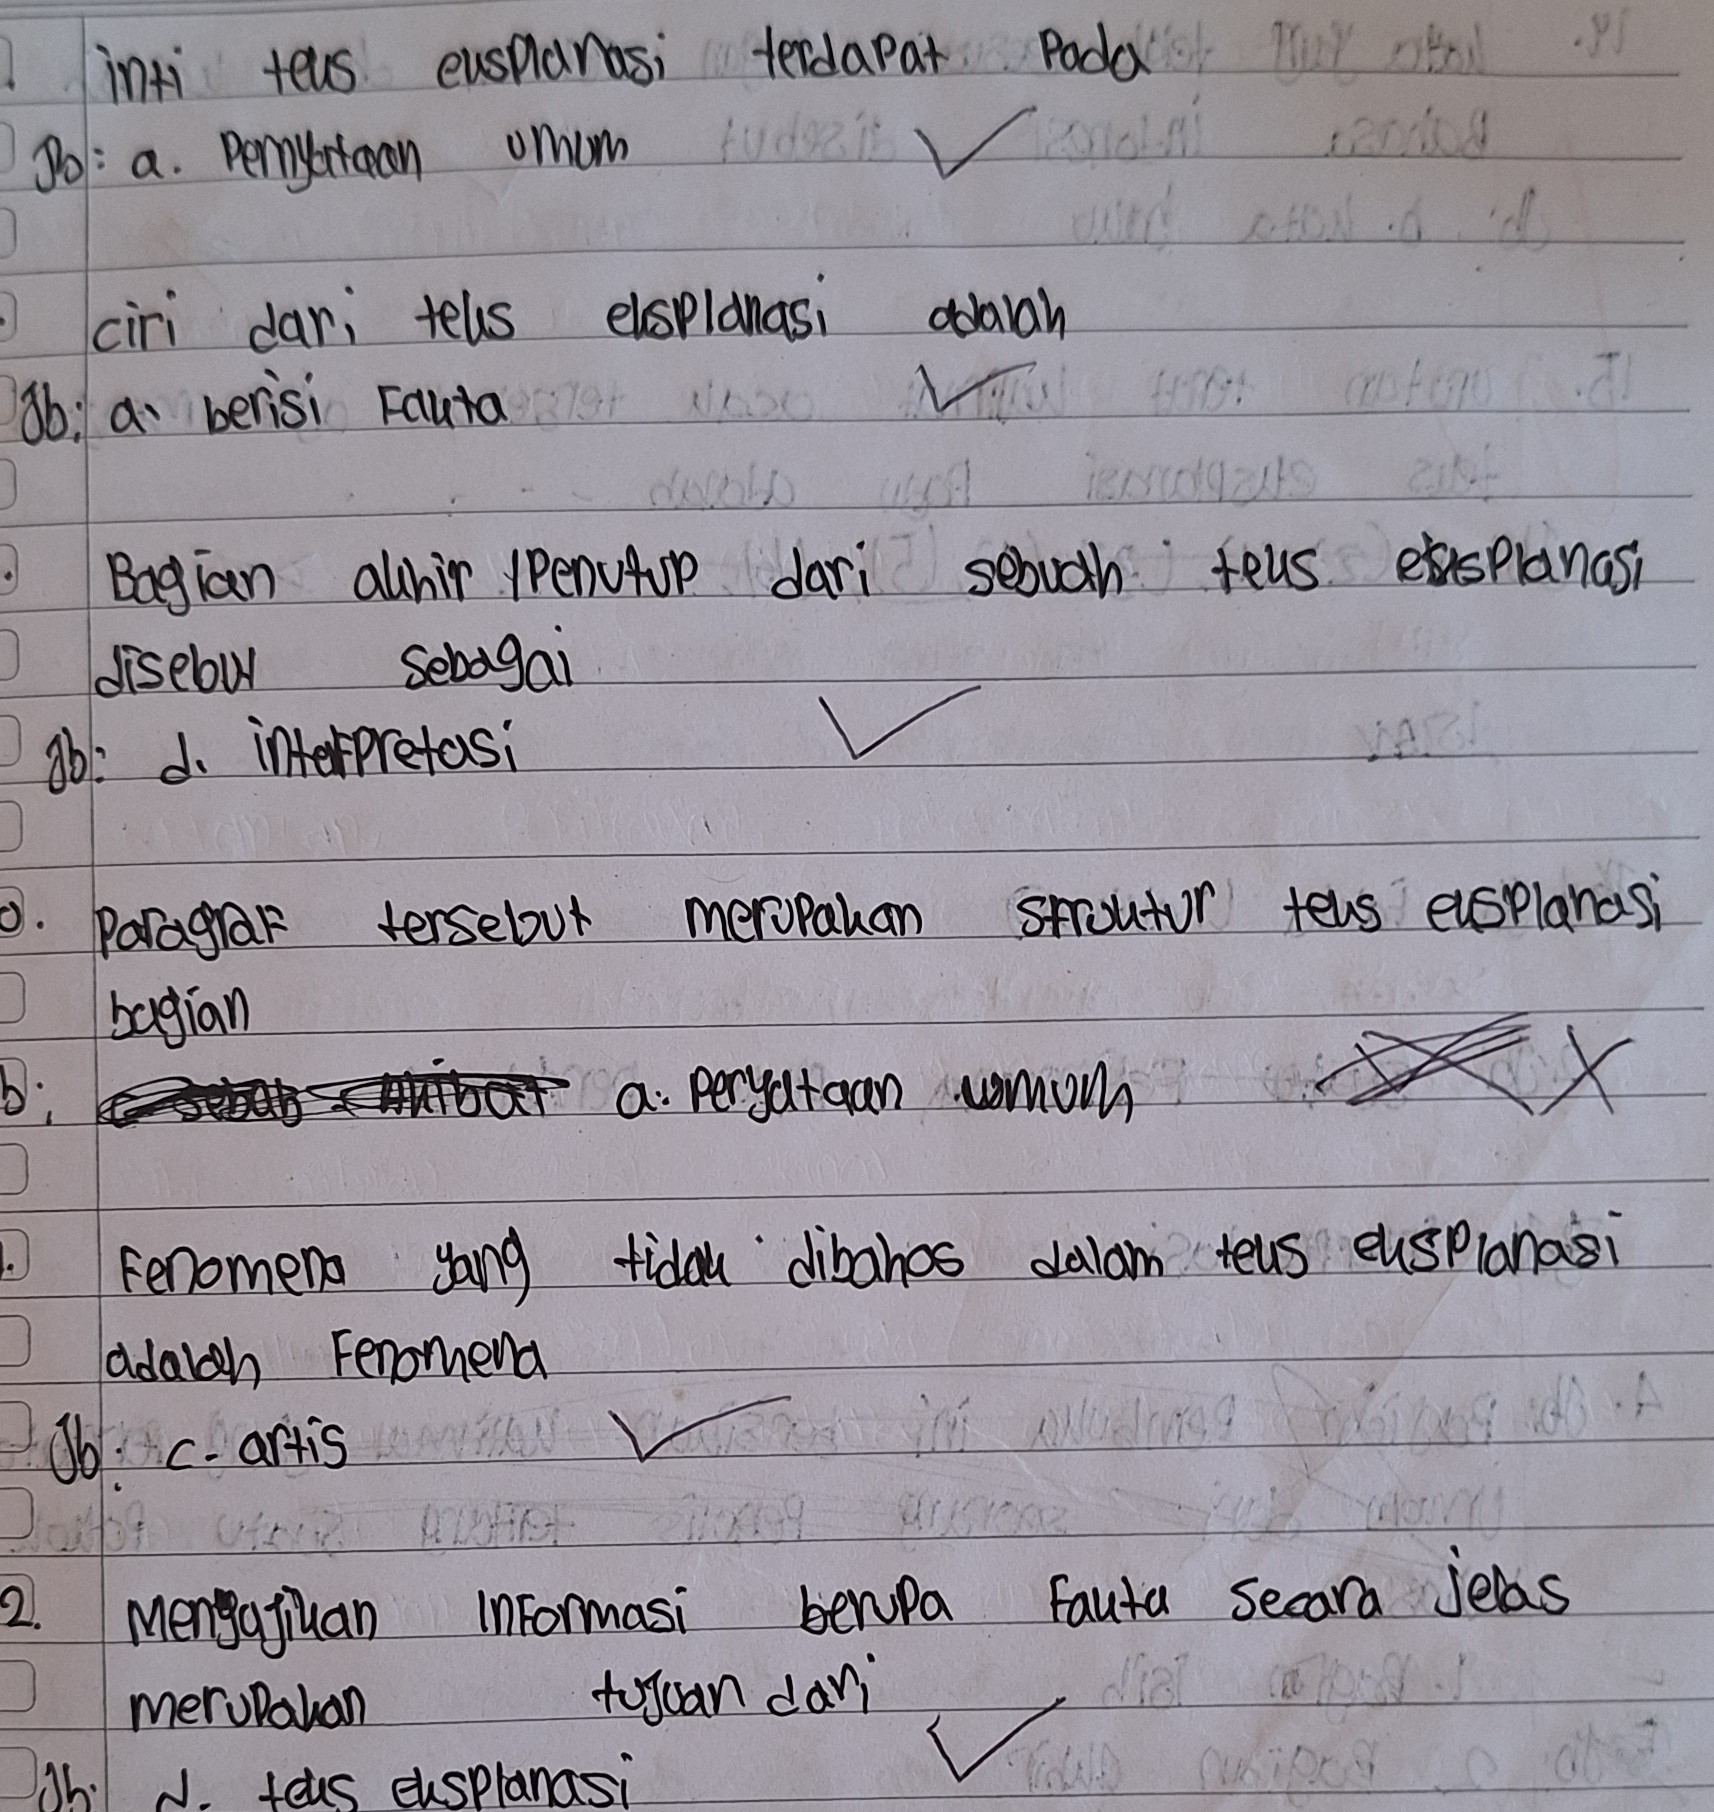 inti teks eksplanasi terdapat Pada
Jb: a. Pernyataan umum
ciri dari teks eksplanasi adalah
Jb: a. berisi Fakta
Bagian akhir / Penutup dari sebuah teks eksplanasi
disebut sebagai
Jb: d. interpretasi
0. Paragraf tersebut merupakan struktur teks eksplanasi
bagian
b: a. peryataan umum
1. Fenomena yang tidak dibahas dalam teks eksplanasi
adalah Fenomena
Jb: c. artis
2. Mengajikan informasi berupa fakta secara jelas
merupakan tujuan dari
Jb: d. teks eksplanasi